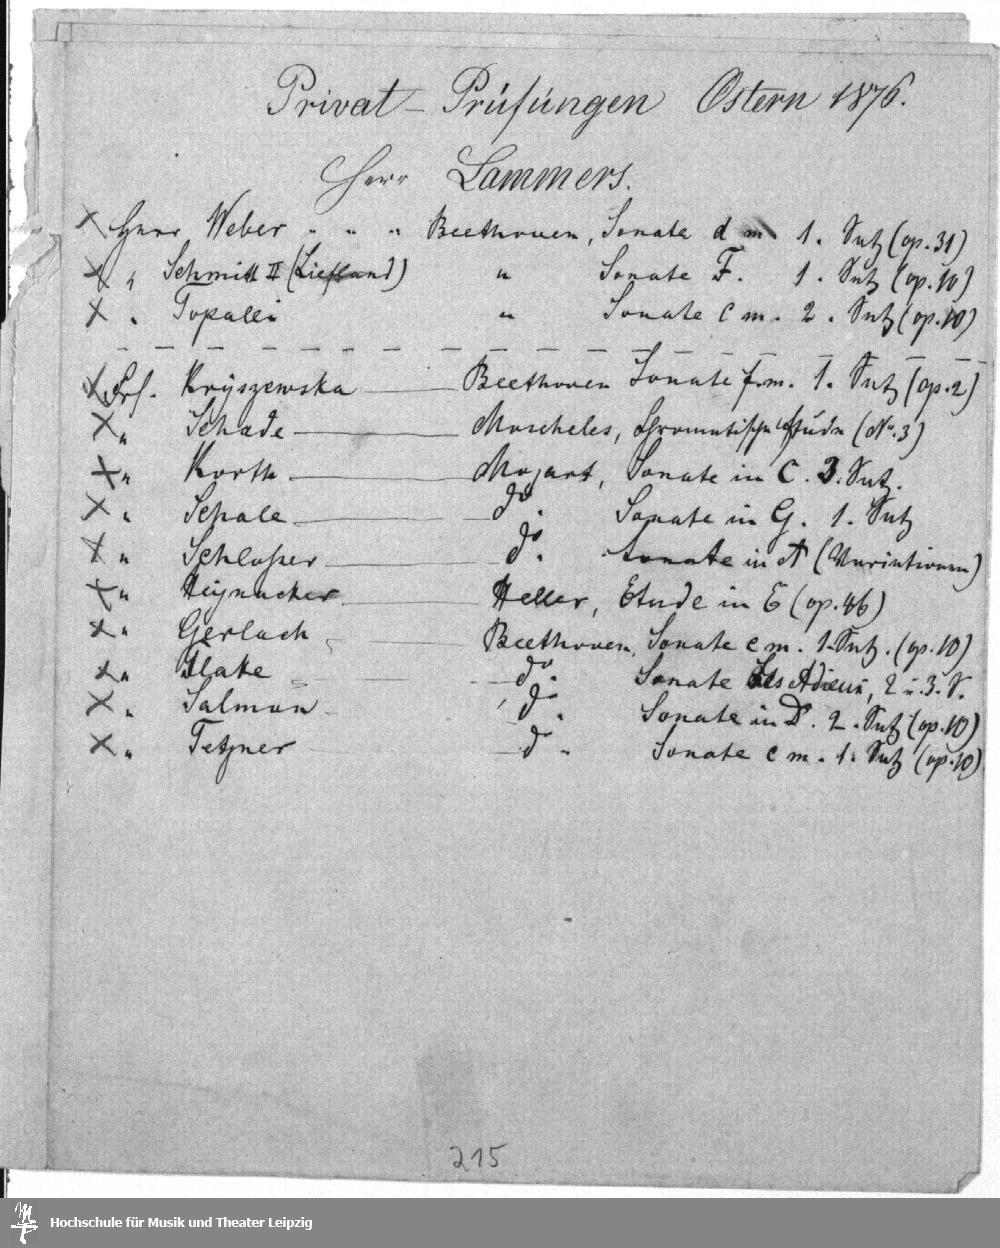 Privat-Prüfungen Ostern 1876.
Herr Lammers.
x Herr Weber " " " Beethoven, Sonate d m 1. Satz (op. 31)
x " Schmitt II (Liefland) " Sonate F. 1. Satz (op. 10)
x " Topalli " Sonate C m. 2. Satz (op. 10)
x Frl. Kryszewska Beethoven Sonate f. m. 1. Satz (op. 2)
x " Schade Moscheles, Chromatische Etüde (No. 3)
x " Korth Mozart, Sonate in C. 3. Satz.
x " Schale do. Sonate in G. 1. Satz
x " Schlosser do. Sonate in A (Variationen)
x " Heynacher Heller, Etude in E (op. 46)
x " Gerlach Beethoven, Sonate c m. 1. Satz. (op. 10)
x " Blake do. Sonate Les Adieux, 2 u. 3. S.
x " Salmon do. Sonate in D. 2. Satz (op. 10)
x " Tetzner do. Sonate c m. 1. Satz (op. 10)
215
Hochschule für Musik und Theater Leipzig